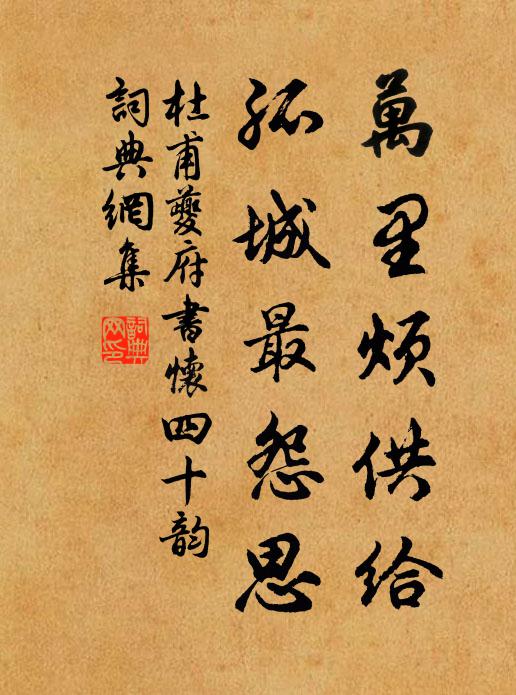 萬里煩供給
孤城最怨思
杜甫夔府書懷四十韵
詞典網集
詞典網印